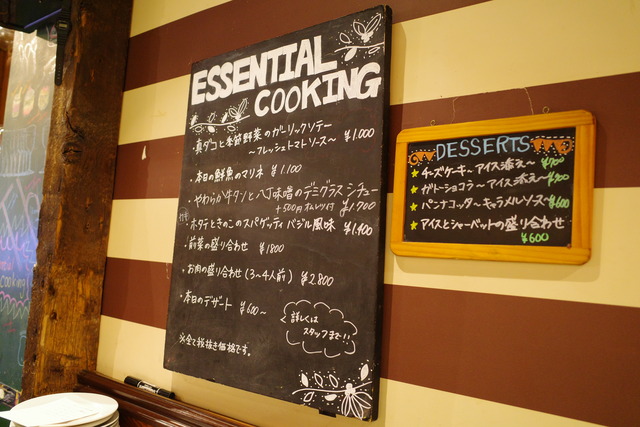 ESSENTIAL
COOKING
・真ダコと季節野菜のガーリックソテー
〜フレッシュトマトソース〜 ¥1.000
・本日の鮮魚のマリネ ¥1.100
・やわらか牛タンと八丁味噌のデミグラスシチュー
+500円オムレツ付 ¥1.700
・ホタテときのこのスパゲッティ バジル風味 ¥1.400
・前菜の盛り合わせ ¥1800
・お肉の盛り合わせ(3〜4人前) ¥2.800
・本日のデザート ¥600〜
詳しくは
スタッフまで!!
※全て税抜き価格です。
DESSERTS
★チーズケーキ〜アイス添え〜 ¥700
★ガトーショコラ〜アイス添え〜
★パンナコッタ〜キャラメルソース ¥600
★アイスとシャーベットの盛り合わせ
¥600
cooking